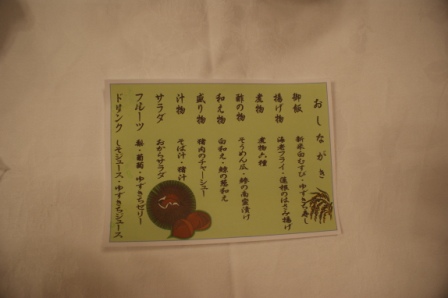 おしながき
御飯　新米白むすび・ゆずきち寿し
揚げ物　海老フライ・蓮根のはさみ揚げ
煮物　煮物六種
酢の物　そうめん瓜・鯵の南蛮漬け
和え物　白和え・鯨の葱和え
盛り物　猪肉のチャーシュー
汁物　そば汁・猪汁
サラダ　おからサラダ
フルーツ　梨・葡萄・ゆずきちゼリー
ドリンク　しそジュース・ゆずきちジュース